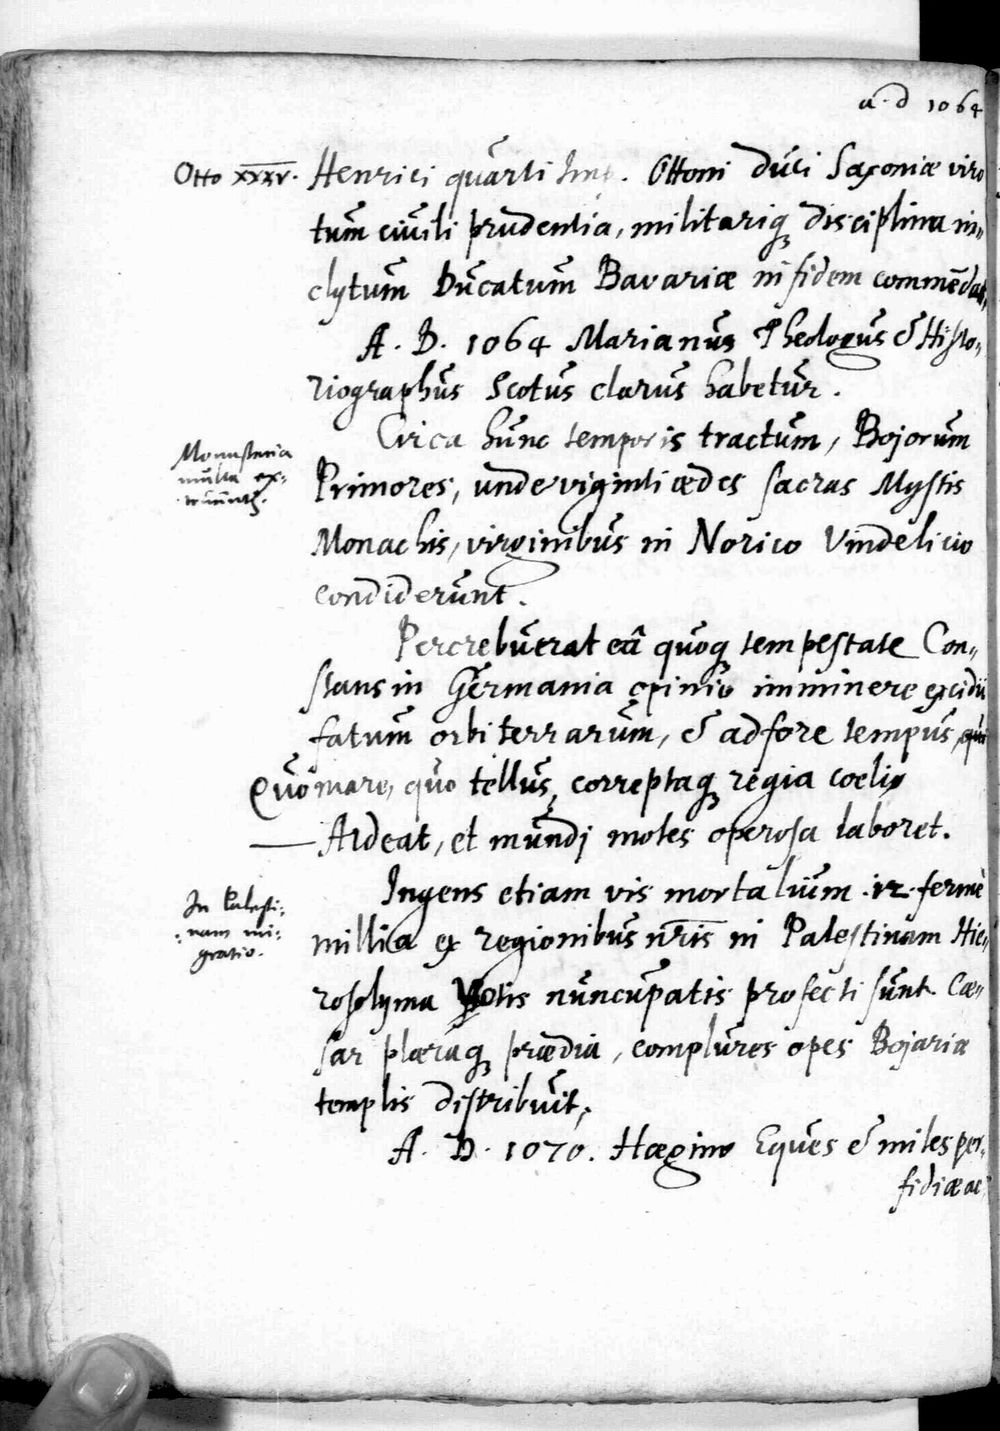 a. d 1064
Otto xxxv.
Henrici quarti Imp. Ottoni duci Saxoniæ viro
tum ciuili prudentia, militariq disciplina in=
clytum Ducatum Bavariæ in fidem commēdat.
A. D. 1064 Marianus Theologus & Histo=
riographus Scotus clarus habetur.
Monasteria
multa ex=
truunt.
Circa hunc temporis tractum, Bojorum
Primores, undeviginti ædes sacras Mystis
Monachis, virginibus in Norico Vindelicio
condiderunt.
Percrebuerat eâ quoq tempestate Con=
stans in Germania opinio imminere excidii
fatum orbi terrarum, & adfore tempus,
Quo mare, quo tellus, correptaq regia coeli
Ardeat, et mundj moles operosa laboret.
In Palesti=
nam mi=
gratio.
Ingens etiam vis mortalium .12. fermè
millia ex regionibus nr̄is in Palestinam Hie=
rosolyma votis nuncupatis profecti sunt. Cæ=
sar plæraq prædia, complures opes Bojariæ
templis distribuit,
A. D. 1070. Hægino Eques & miles per=
fidiæ ac